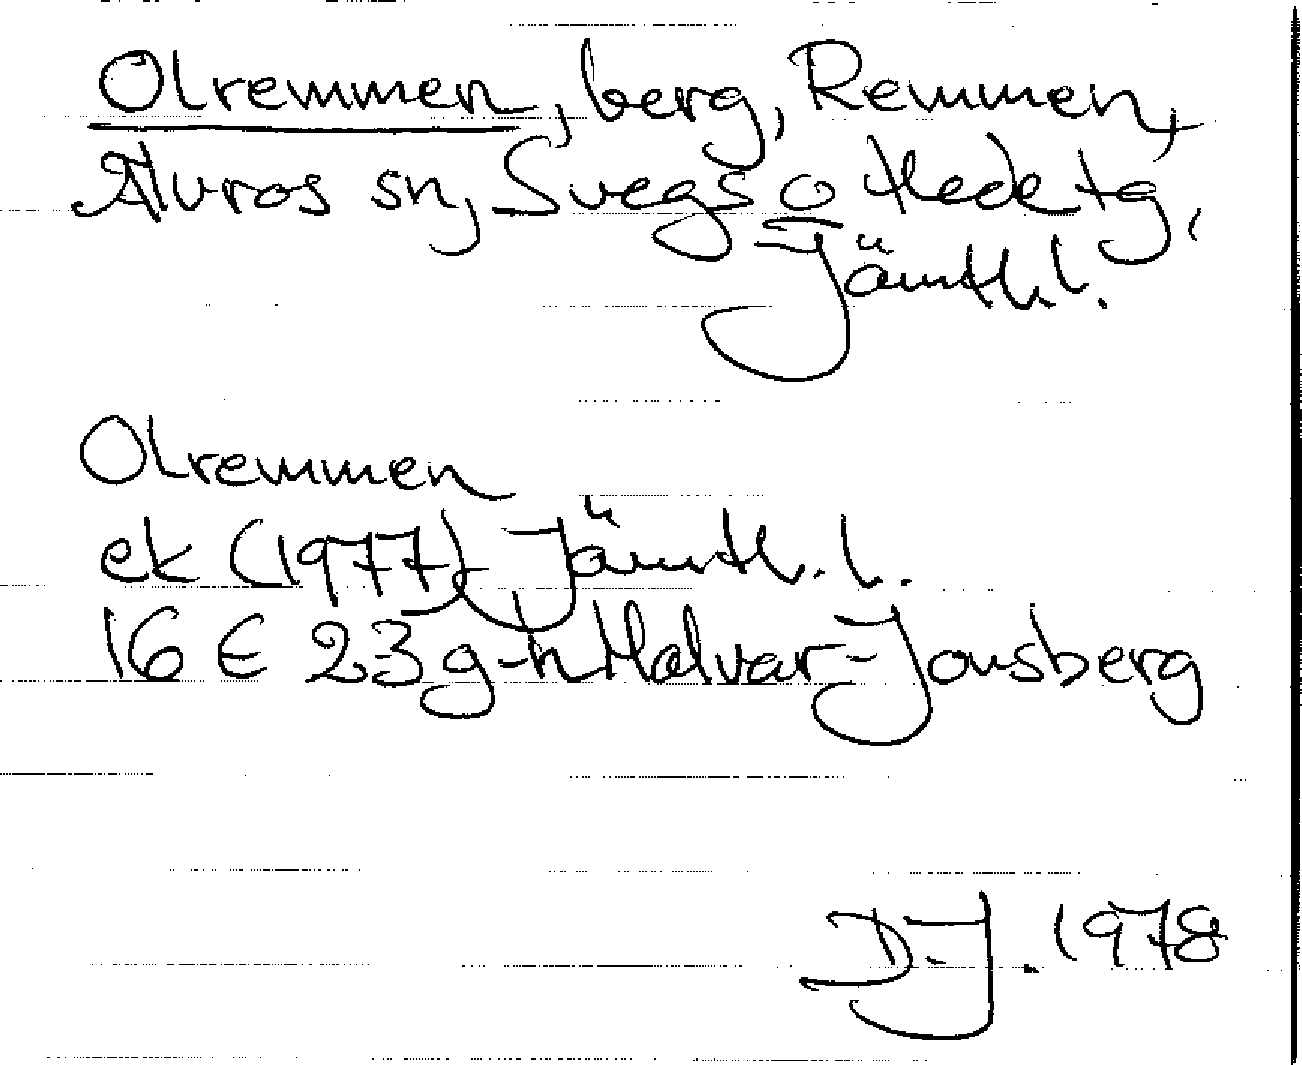 Olremmen, berg, Remmen,
Älvros sn, Svegs o Hede tg,
Jämtl. l.
Olremmen
ek (1977) Jämtl. l.
16 E 23 g-h Halvar-Jonsberg
D.J. 1978